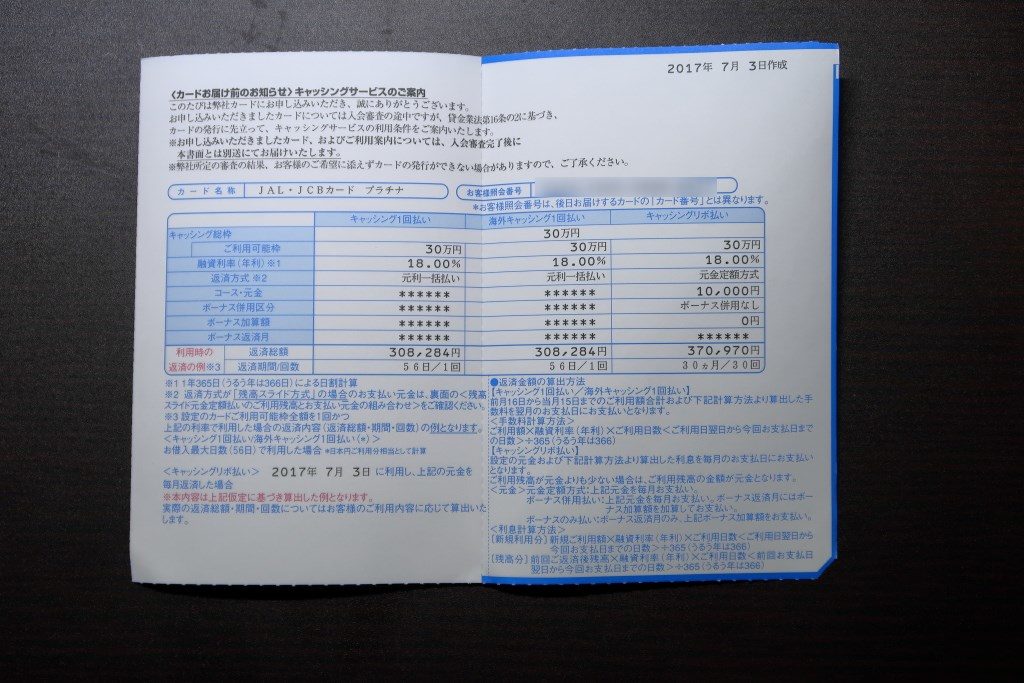 2017年 7月 3日作成
〈カードお届け前のお知らせ〉キャッシングサービスのご案内
このたびは弊社カードにお申し込みいただき、誠にありがとうございます。
お申し込みいただきましたカードについては入会審査の途中ですが、貸金業法第16条の2に基づき、
カードの発行に先立って、キャッシングサービスの利用条件をご案内いたします。
※お申し込みいただきましたカード、およびご利用案内については、入会審査完了後に
本書面とは別送にてお届けいたします。
※弊社所定の審査の結果、お客様のご希望に添えずカードの発行ができない場合がありますので、ご了承ください。
カード名称 JAL・JCBカード プラチナ お客様照会番号
※お客様照会番号は、後日お届けするカードの「カード番号」とは異なります。
キャッシング1回払い 海外キャッシング1回払い キャッシングリボ払い
キャッシング総枠 30万円
ご利用可能枠 30万円 30万円 30万円
融資利率(年利)※1 18.00% 18.00% 18.00%
返済方式※2 元利一括払い 元利一括払い 元金定額方式
コース・元金 ****** ****** 10,000円
ボーナス併用区分 ****** ****** ボーナス併用なし
ボーナス加算額 ****** ****** 0円
ボーナス返済月 ****** ****** ******
利用時の 返済総額 308,284円 308,284円 370,970円
返済の例※3 返済期間/回数 56日/1回 56日/1回 30ヵ月/30回
※1 1年365日(うるう年は366日)による日割計算
※2 返済方式が「残高スライド方式」の場合のお支払い元金は、裏面の<残高
スライド元金定額払いのご利用残高とお支払い元金の組み合わせ>をご確認ください。
※3 設定のカードご利用可能枠全額を1回かつ
上記の利率で利用した場合の返済内容(返済総額・期間・回数)の例となります。
<キャッシング1回払い/海外キャッシング1回払い(*)>
お借入最大日数(56日)で利用した場合 *日本円ご利用分相当として計算
<キャッシングリボ払い> 2017年 7月 3日 に利用し、上記の元金を
毎月返済した場合
※本内容は上記仮定に基づき算出した例となります。
実際の返済総額・期間・回数についてはお客様のご利用内容に応じて算出いた
します。
●返済金額の算出方法
【キャッシング1回払い/海外キャッシング1回払い】
前月16日から当月15日までのご利用額合計および下記計算方法より算出した手
数料を翌月のお支払日にお支払いとなります。
<手数料計算方法>
ご利用額×融資利率(年利)×ご利用日数<ご利用日翌日から今回お支払日まで
の日数>÷365(うるう年は366)
【キャッシングリボ払い】
設定の元金および下記計算方法より算出した利息を毎月のお支払日にお支払い
となります。
ご利用残高が元金よりも少ない場合は、ご利用残高の金額が元金となります。
<元金>元金定額方式:上記元金を毎月お支払い。
ボーナス併用払い:上記元金を毎月お支払い。ボーナス返済月にはボー
ナス加算額を加算してお支払い。
ボーナスのみ払い:ボーナス返済月のみ、上記ボーナス加算額をお支払い。
<利息計算方法>
[新規利用分]新規ご利用額×融資利率(年利)×ご利用日数<ご利用日翌日から
今回お支払日までの日数>÷365(うるう年は366)
[残高分]前回ご返済後残高×融資利率(年利)×ご利用日数<前回お支払日
翌日から今回お支払日までの日数>÷365(うるう年は366)